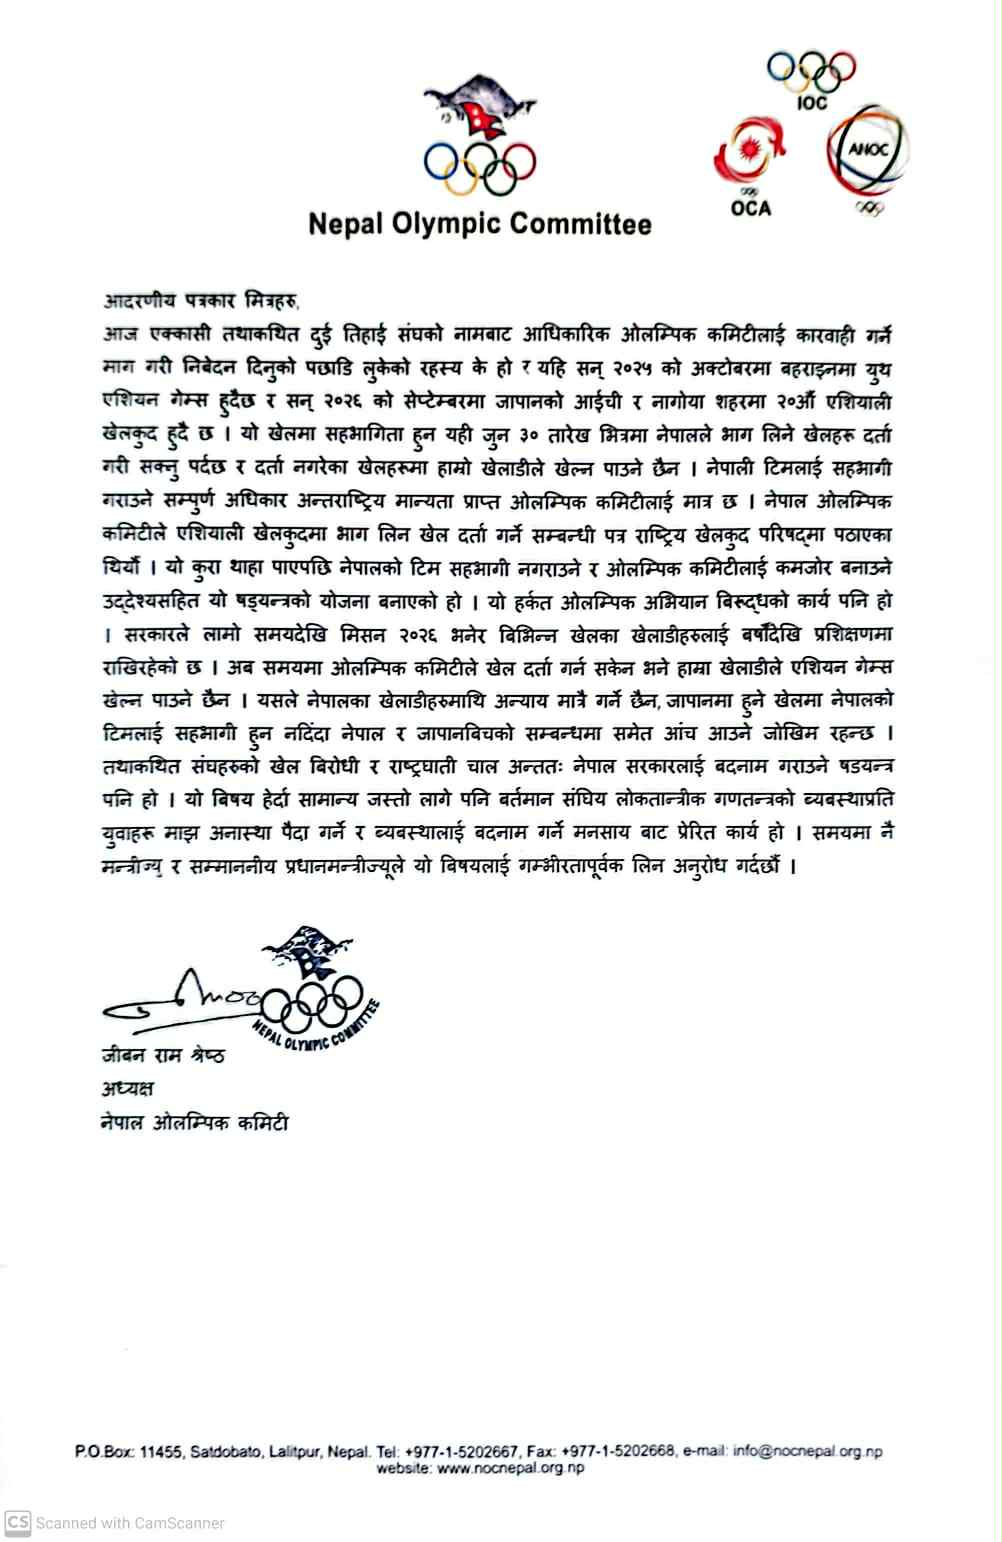 IOC
OCA
ANOC
Nepal Olympic Committee
आदरणीय पत्रकार मित्रहरु,
आज एक्कासी तथाकथित दुई तिहाई संघको नामबाट आधिकारिक ओलम्पिक कमिटीलाई कारवाही गर्ने
माग गरी निबेदन दिनुको पछाडि लुकेको रहस्य के हो र यहि सन् २०२५ को अक्टोबरमा बहराइनमा युथ
एशियन गेम्स हुदैछ र सन् २०२६ को सेप्टेम्बरमा जापानको आईची र नागोया शहरमा २०औं एशियाली
खेलकुद हुदै छ । यो खेलमा सहभागिता हुन यही जुन ३० तारेख भित्रमा नेपालले भाग लिने खेलहरू दर्ता
गरी सक्नु पर्दछ र दर्ता नगरेका खेलहरूमा हाम्रो खेलाडीले खेल्न पाउने छैन । नेपाली टिमलाई सहभागी
गराउने सम्पुर्ण अधिकार अन्तराष्ट्रिय मान्यता प्राप्त ओलम्पिक कमिटीलाई मात्र छ । नेपाल ओलम्पिक
कमिटीले एशियाली खेलकुदमा भाग लिन खेल दर्ता गर्ने सम्बन्धी पत्र राष्ट्रिय खेलकुद परिषद्मा पठाएका
थियौं । यो कुरा थाहा पाएपछि नेपालको टिम सहभागी नगराउने र ओलम्पिक कमिटीलाई कमजोर बनाउने
उद्देश्यसहित यो षड्यन्त्रको योजना बनाएको हो । यो हर्कत ओलम्पिक अभियान बिरूद्धको कार्य पनि हो
। सरकारले लामो समयदेखि मिसन २०२६ भनेर बिभिन्न खेलका खेलाडीहरुलाई बर्षौंदेखि प्रशिक्षणमा
राखिरहेको छ । अब समयमा ओलम्पिक कमिटीले खेल दर्ता गर्न सकेन भने हाम्रा खेलाडीले एशियन गेम्स
खेल्न पाउने छैन । यसले नेपालका खेलाडीहरुमाथि अन्याय मात्रै गर्ने छैन, जापानमा हुने खेलमा नेपालको
टिमलाई सहभागी हुन नदिंदा नेपाल र जापानबिचको सम्बन्धमा समेत आंच आउने जोखिम रहन्छ ।
तथाकथित संघहरुको खेल बिरोधी र राष्ट्रघाती चाल अन्ततः नेपाल सरकारलाई बदनाम गराउने षडयन्त्र
पनि हो । यो बिषय हेर्दा सामान्य जस्तो लागे पनि बर्तमान संघिय लोकतान्त्रीक गणतन्त्रको ब्यबस्थाप्रति
युवाहरू माझ अनास्था पैदा गर्ने र ब्यबस्थालाई बदनाम गर्ने मनसाय बाट प्रेरित कार्य हो । समयमा नै
मन्त्रीज्यु र सम्माननीय प्रधानमन्त्रीज्यूले यो बिषयलाई गम्भीरतापूर्वक लिन अनुरोध गर्दछौं ।
NEPAL OLYMPIC COMMITTEE
जीबन राम श्रेष्ठ
अध्यक्ष
नेपाल ओलम्पिक कमिटी
P.O.Box: 11455, Satdobato, Lalitpur, Nepal. Tel: +977-1-5202667, Fax: +977-1-5202668, e-mail: info@nocnepal.org.np
website: www.nocnepal.org.np
CS Scanned with CamScanner